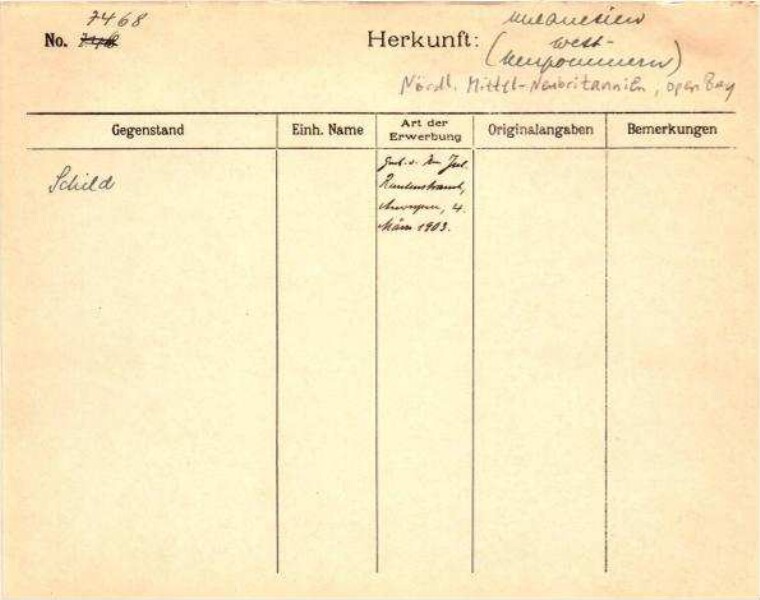 7468
No. Herkunft: Melanesien
(West-
Neupommern)
Nördl. Mittel-Neubritannien, Open Bay
Gegenstand Einh. Name Art der Erwerbung Originalangaben Bemerkungen
Schild
4.
März 1903.